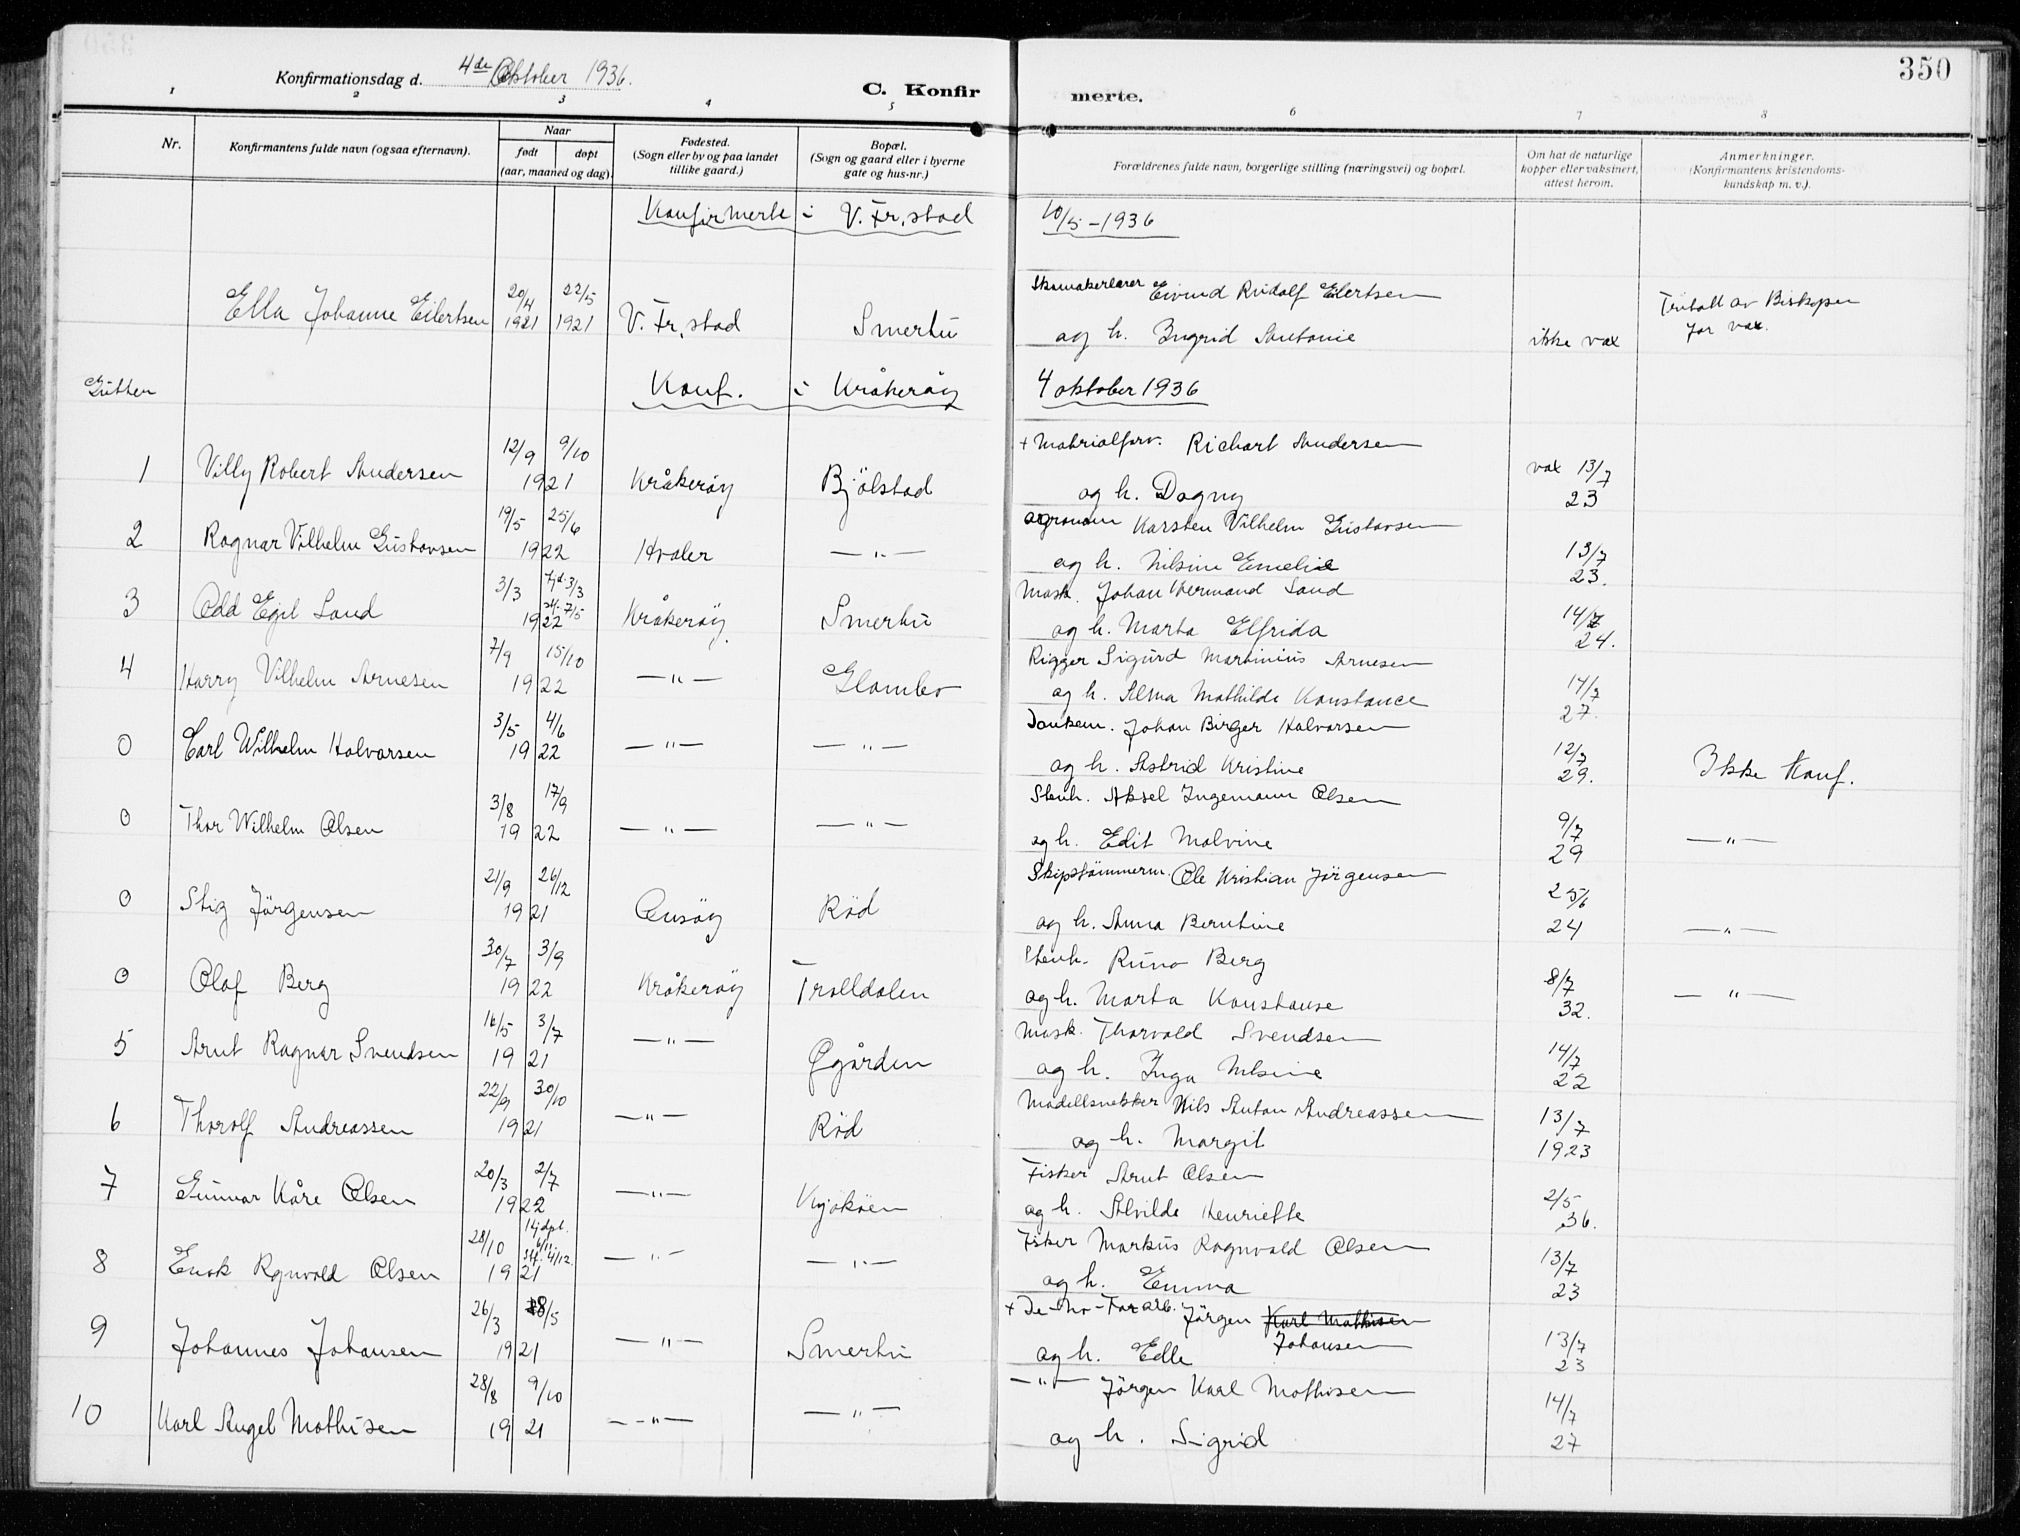 350
Konfirmationsdag d. 4de Oktober 1936.
C. Konfir merte.
1 2 3 4 5 6 7 8
Nr.
Konfirmantens fulde navn (ogsaa efternavn).
Naar
født døpt
(aar, maaned og dag).
Fødested.
(Sogn eller by og paa landet
tillike gaard.)
Bopæl.
(Sogn og gaard eller i byerne
gate og hus-nr.)
Forældrenes fulde navn, borgerlige stilling (næringsvei) og bopæl.
Om hat de naturlige
kopper eller vaksinert,
attest herom.
Anmerkninger.
(Konfirmantens kristendoms-
kundskap m. v.).
Konfirmerte i V. Fr.stad 10/5 - 1936
Ella Johanne Eilertsen 20/4 1921 22/5 1921 V. Fr.stad Smertu
Skomakerlærer Eivind Rudolf Eilertsen
og h. Ingrid Antonie ikke vax
Fritatt av Biskopen
for vax.
Gutter Konf. i Kråkerøy 4 oktober 1936
1 Villy Robert Andersen 12/9 9/10 1921 Kråkerøy Bjölstad
+ Matrialforv. Richart Andersen
og h. Dagny vax 13/7 23
2 Ragnar Vilhelm Gustavsen 19/5 25/6 1922 Hvaler — " —
agronom Karsten Vilhelm Gustavsen
og h. Nilsine Emelie 13/7 23.
3 Odd Egil Sand 3/3 hjd. 3/3 st. 7/5 1922 Kråkerøy Smertu
Mask. Johan Hermand Sand
og h. Marta Elfrida 14/7 24.
4 Harry Vilhelm Arnesen 7/9 15/10 1922 — " — Glombo
Rigger Sigurd Martinius Arnesen
og h. Alma Mathilde Konstance 14/7 27.
0 Carl Wilhelm Halvorsen 3/5 4/6 1922 — " — — " —
Johan Birger Halvorsen
og h. Astrid Kristine 12/7 29. Ikke Konf.
0 Thor Wilhelm Olsen 3/8 17/9 1922 — " — — " —
Stenh. Aksel Ingemann Olsen
og h. Edit Malvine 9/7 29 — " —
0 Stig Jörgensen 21/9 26/12 1921 Onsöy Röd
Skipstömmerm. Ole Kristian Jörgensen
og h. Anna Berntine 25/6 24 — " —
0 Olaf Berg 30/7 3/9 1922 Kråkerøy Trolldalen
Stenh. Runo Berg
og h. Marta Konstanse 8/7 32. — " —
5 Arnt Ragnar Svendsen 16/5 3/7 1921 — " — Øgården
Mask. Thorvald Svendsen
og h. Inga Nilsine 14/7 22
6 Thorolf Andreassen 22/9 30/10 1921 — " — Röd
Modellsnekker Nils Anton Andreassen
og h. Margit 13/7 1923
7 Gunnar Kåre Olsen 20/3 2/7 1922 — " — Kjøköen
Fisker Arnt Olsen
og h. Alvilde Henriette 2/5 36.
8 Enok Rgnvald Olsen 28/10 hjdpt. 6/11 st. 4/12. 1921 — " — — " —
Fisker Markus Ragnvald Olsen
og h. Emma 13/7 23
9 Johannes Johansen 26/3 8/5 1921 — " — Smertu
+ De-No-Fa arb. Jörgen Karl Mathisen
Johansen
og h. Edle 13/7 23
10 Karl Angel Mathisen 28/8 9/10 1921 — " — — " —
— " — Jörgen Karl Mathisen
og h. Sigrid 14/7 27